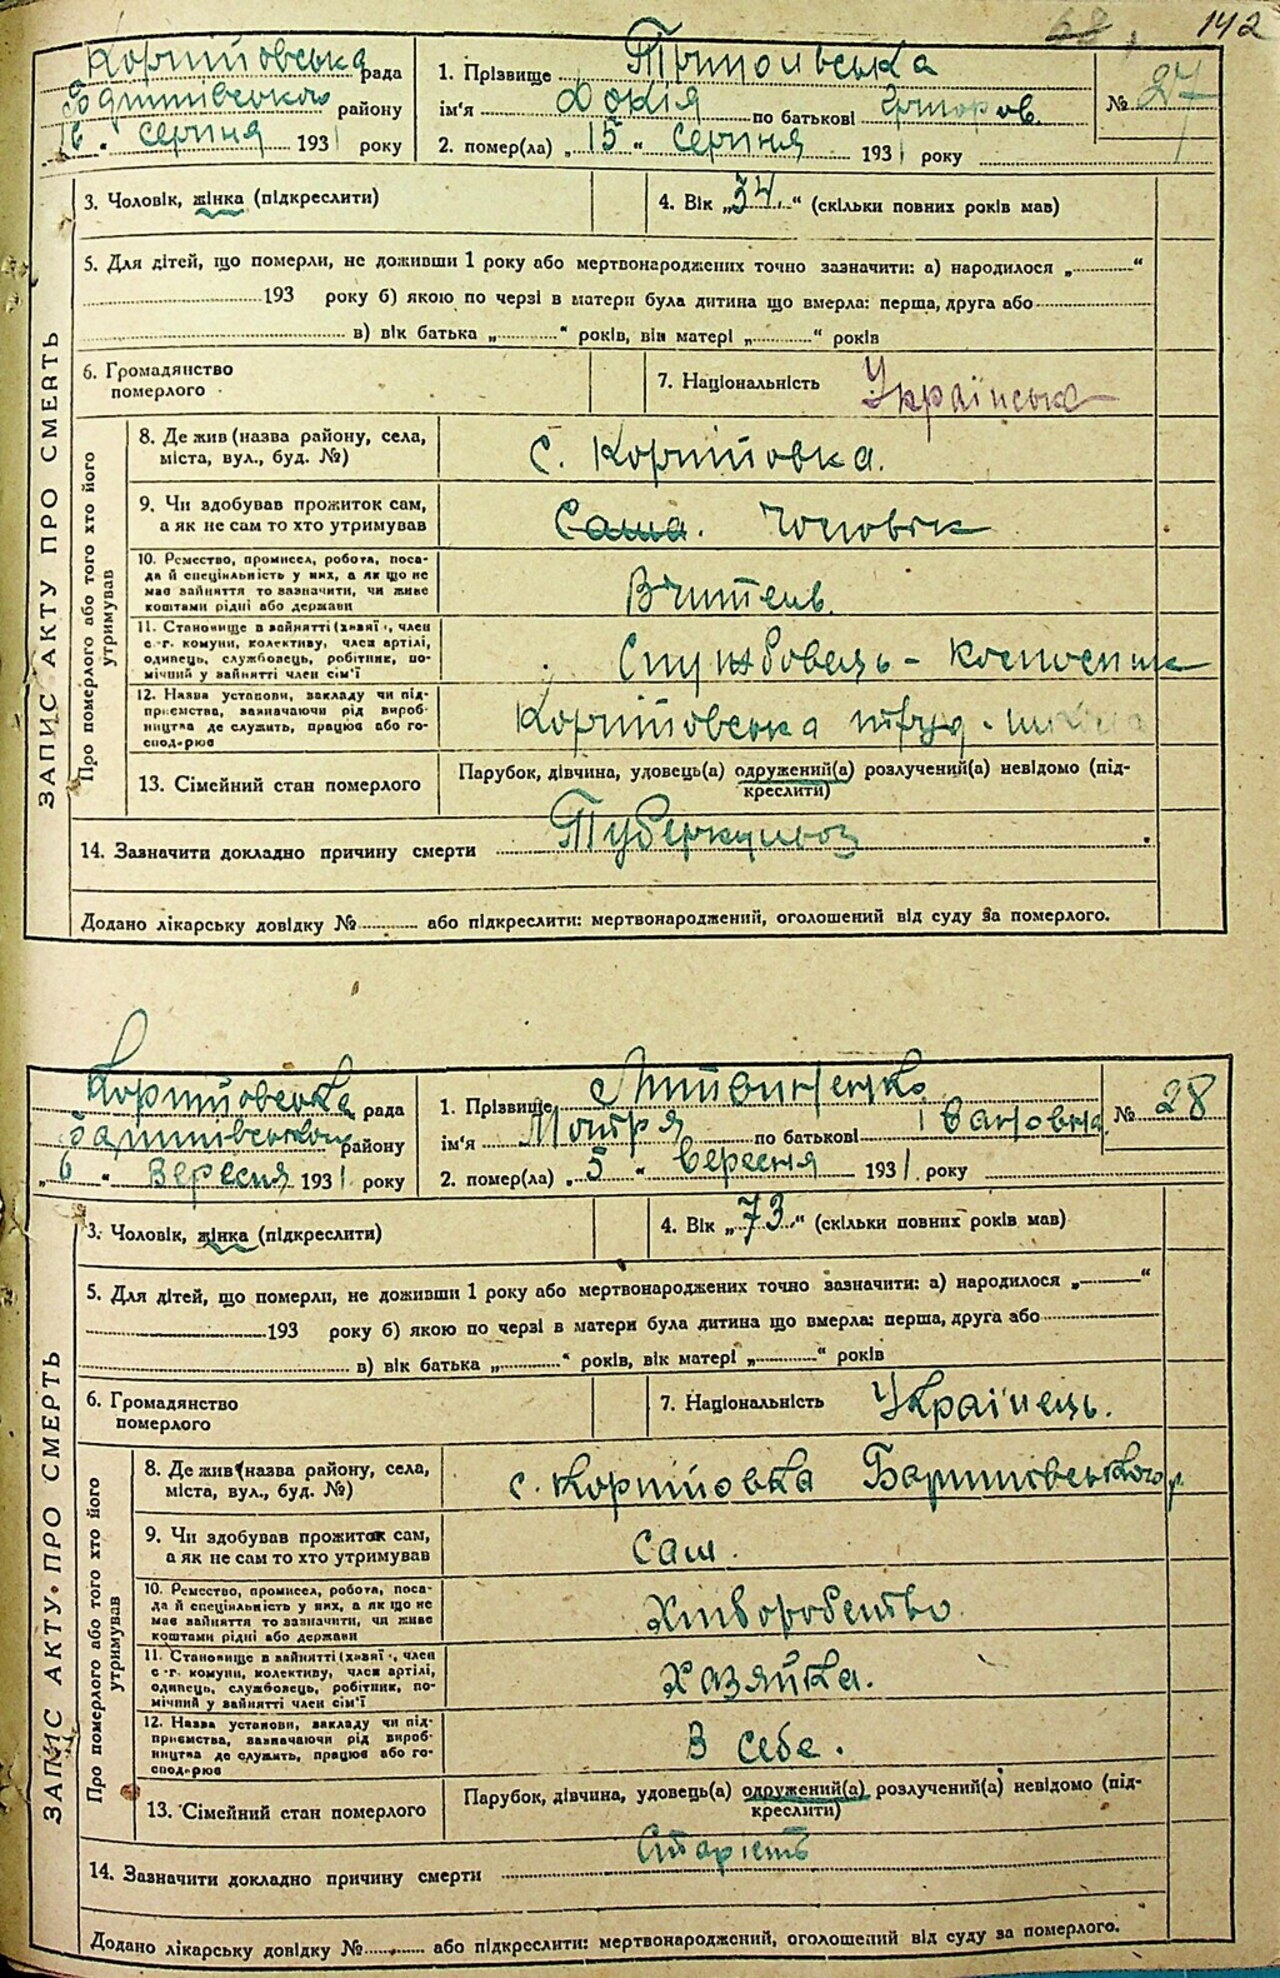 68, 142
Коржiйовська рада
Баришівського району
16 " серпня 1931 року
1. Прізвище Трипольська
ім'я Докія по батькові Григоров.
2. помер(ла) „ 15 " серпня 1931 року
№ 27
ЗАПИС АКТУ ПРО СМЕРТЬ
3. Чоловік, жінка (підкреслити)
4. Вік „34." (скільки повних років мав)
5. Для дітей, що померли, не доживши 1 року або мертвонароджених точно зазначити: а) народилося „ "
193 року б) якою по черзі в матери була дитина що вмерла: перша, друга або
в) вік батька „ " років, вік матері „ " років
6. Громадянство
померлого
7. Національність Українська
Про померлого або того хто його
утримував
8. Де жив (назва району, села,
міста, вул., буд. №)
с. Коржійовка.
9. Чи здобував прожиток сам,
а як не сам то хто утримував
Сама. Чоловік
10. Ремество, промисел, робота, поса-
да й спеціяльність у них, а як що не
має зайняття то зазначити, чи живе
коштами рідні або держави
Вчитель.
11. Становище в зайнятті (хазяї, член
с.-г. комуни, колективу, член артілі,
одинець, службовець, робітник, по-
мічний у зайнятті член сім'ї
Службовець -
12. Назва установи, закладу чи під-
приємства, зазначаючи рід вироб-
ництва де служить, працює або го-
сподарює
Коржійовська труд. школа
13. Сімейний стан померлого
Парубок, дівчина, удовець(а) одружений(а) розлучений(а) невідомо (під-
креслити)
14. Зазначити докладно причину смерти Туберкульоз
Додано лікарську довідку № або підкреслити: мертвонароджений, оголошений від суду за померлого.
Коржійовська рада
Баришівського району
„ 6 " Вересня 1931. року
1. Прізвище Литвиненко
ім'я Мотря по батькові Івановна
2. помер(ла) „ 5 " вересня 1931. року
№ 28
ЗАПИС АКТУ ПРО СМЕРТЬ
3. Чоловік, жінка (підкреслити)
4. Вік „73." (скільки повних років мав)
5. Для дітей, що померли, не доживши 1 року або мертвонароджених точно зазначити: а) народилося „ "
193 року б) якою по черзі в матери була дитина що вмерла: перша, друга або
в) вік батька „ " років, вік матері „ " років
6. Громадянство
померлого
7. Національність Українець.
Про померлого або того хто його
утримував
8. Де жив (назва району, села,
міста, вул., буд. №)
с. Коржійовка Баришівського р.
9. Чи здобував прожиток сам,
а як не сам то хто утримував
Сам.
10. Ремество, промисел, робота, поса-
да й спеціяльність у них, а як що не
має зайняття то зазначити, чи живе
коштами рідні або держави
Хліборобство.
11. Становище в зайнятті (хазяї, член
с.-г. комуни, колективу, член артілі,
одинець, службовець, робітник, по-
мічний у зайнятті член сім'ї
Хазяйка.
12. Назва установи, закладу чи під-
приємства, зазначаючи рід вироб-
ництва де служить, працює або го-
сподарює
В себе.
13. Сімейний стан померлого
Парубок, дівчина, удовець(а) одружений(а) розлучений(а) невідомо (під-
креслити)
14. Зазначити докладно причину смерти Старість
Додано лікарську довідку № або підкреслити: мертвонароджений, оголошений від суду за померлого.